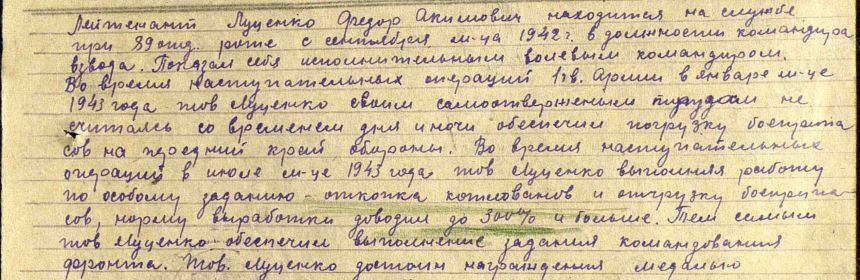 Лейтенант Луценко Федор Акимович находится на службе
при 89 отд. роте с сентября м-ца 1942 г. в должности командира
взвода. Показал себя исполнительным волевым командиром.
Во время наступательных операций 1 гв. Армии в январе м-це
1943 года тов Луценко своим самоотверженым трудом не
считаясь со временем дня и ночи обеспечил погрузку боеприпа
сов на передний край обороны. Во время наступательных
операций в июле м-це 1943 года тов Луценко выполняя работу
по особому заданию - откопка котлованов и отгрузку боеприпа-
сов, норму выработки доводил до 300% и больше. Тем самым
тов Луценко обеспечил выполнение задания командования
фронта. Тов. Луценко достоин награждения медалью